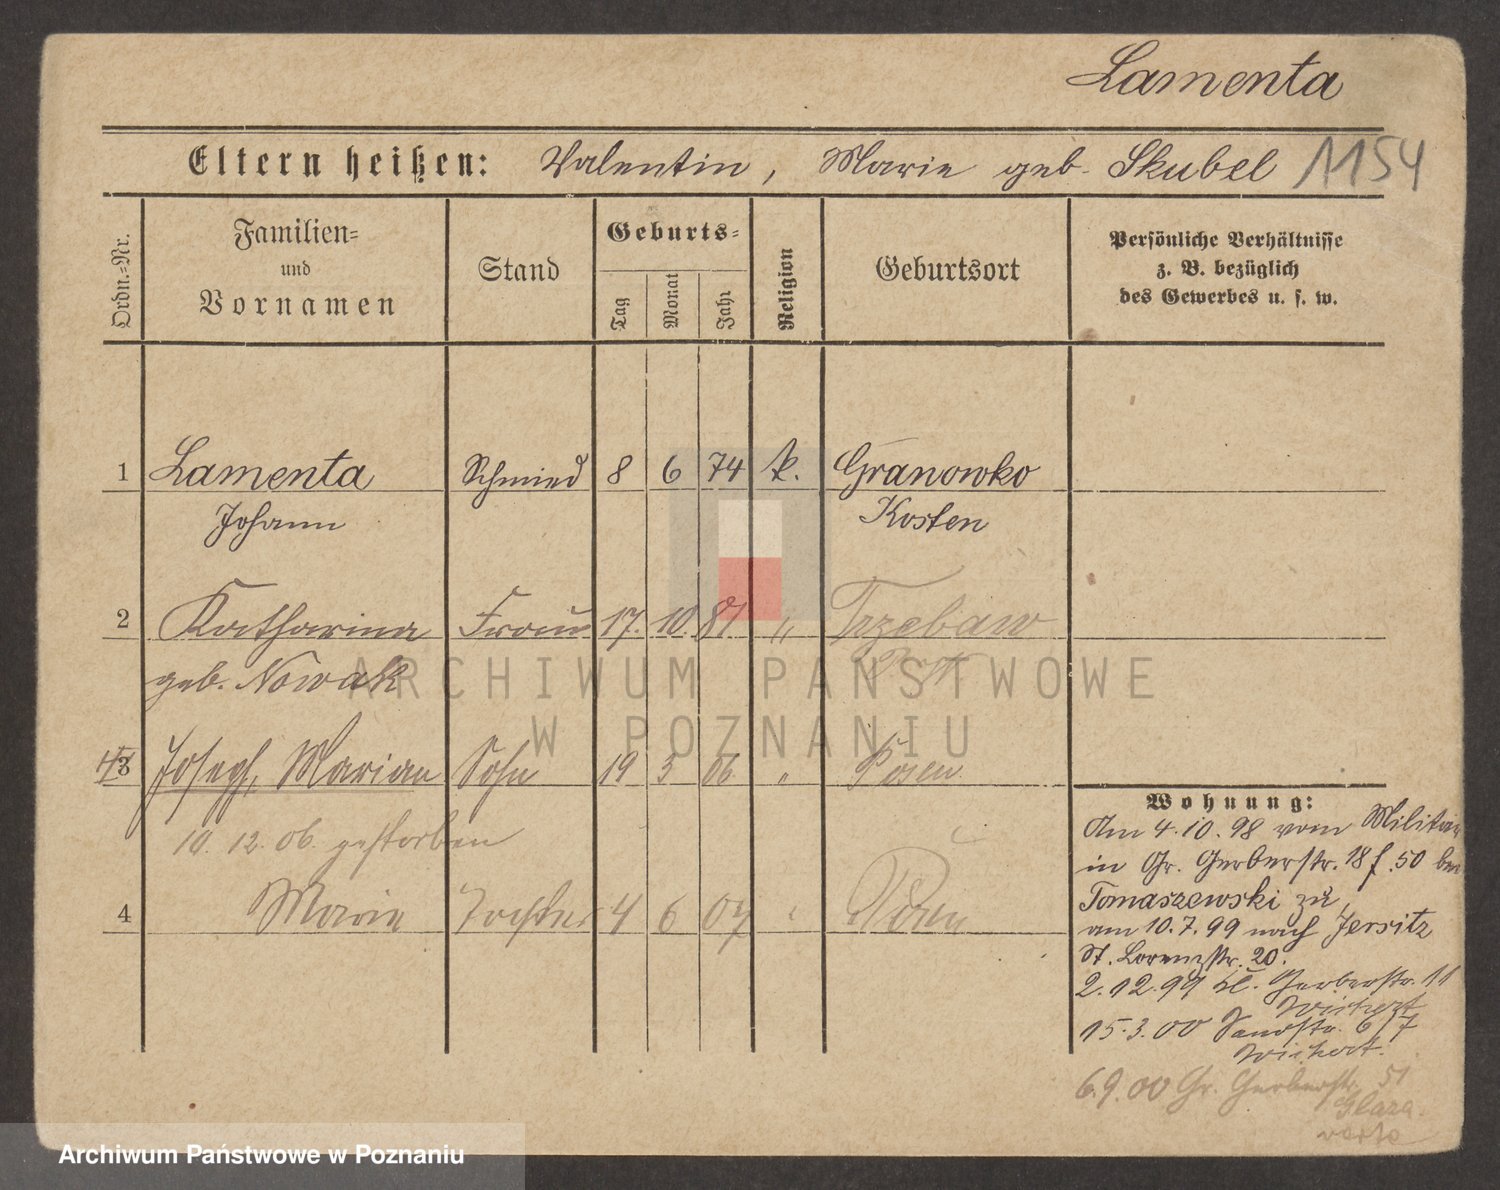 Lamenta
Eltern heißen: Valentin, Marie geb. Skubel 1154
Ordn.=Nr.
Familien=
und
Vornamen
Stand
Geburts=
Tag
Monat
Jahr
Religion
Geburtsort
Persönliche Verhältnisse
z. B. bezüglich
des Gewerbes u. s. w.
1 Lamenta Schmied 8 6 74 k. Granowko
Johann Kosten
2 Katharina Frau 17. 10. 81 " Trzebaw
geb. Nowak
3 Joseph, Marian Sohn 19 3 06 " Posen
10. 12. 06. gestorben
4 Marie Tochter 4 6 07 " Posen
Wohnung:
Am 4.10.98 vom Militär
in Gr. Gerberstr. 18 f. 50 bei
Tomaszewski zu,
am 10.7.99 nach Jersitz
St. Lorenzstr. 20.
2.12.99 Kl. Gerberstr. 11
Wichert
15.3.00 Sandstr. 6/7
Wichert.
6.9.00 Gr. Gerberstr. 51
ARCHIWUM PAŃSTWOWE
W POZNANIU
Archiwum Państwowe w Poznaniu